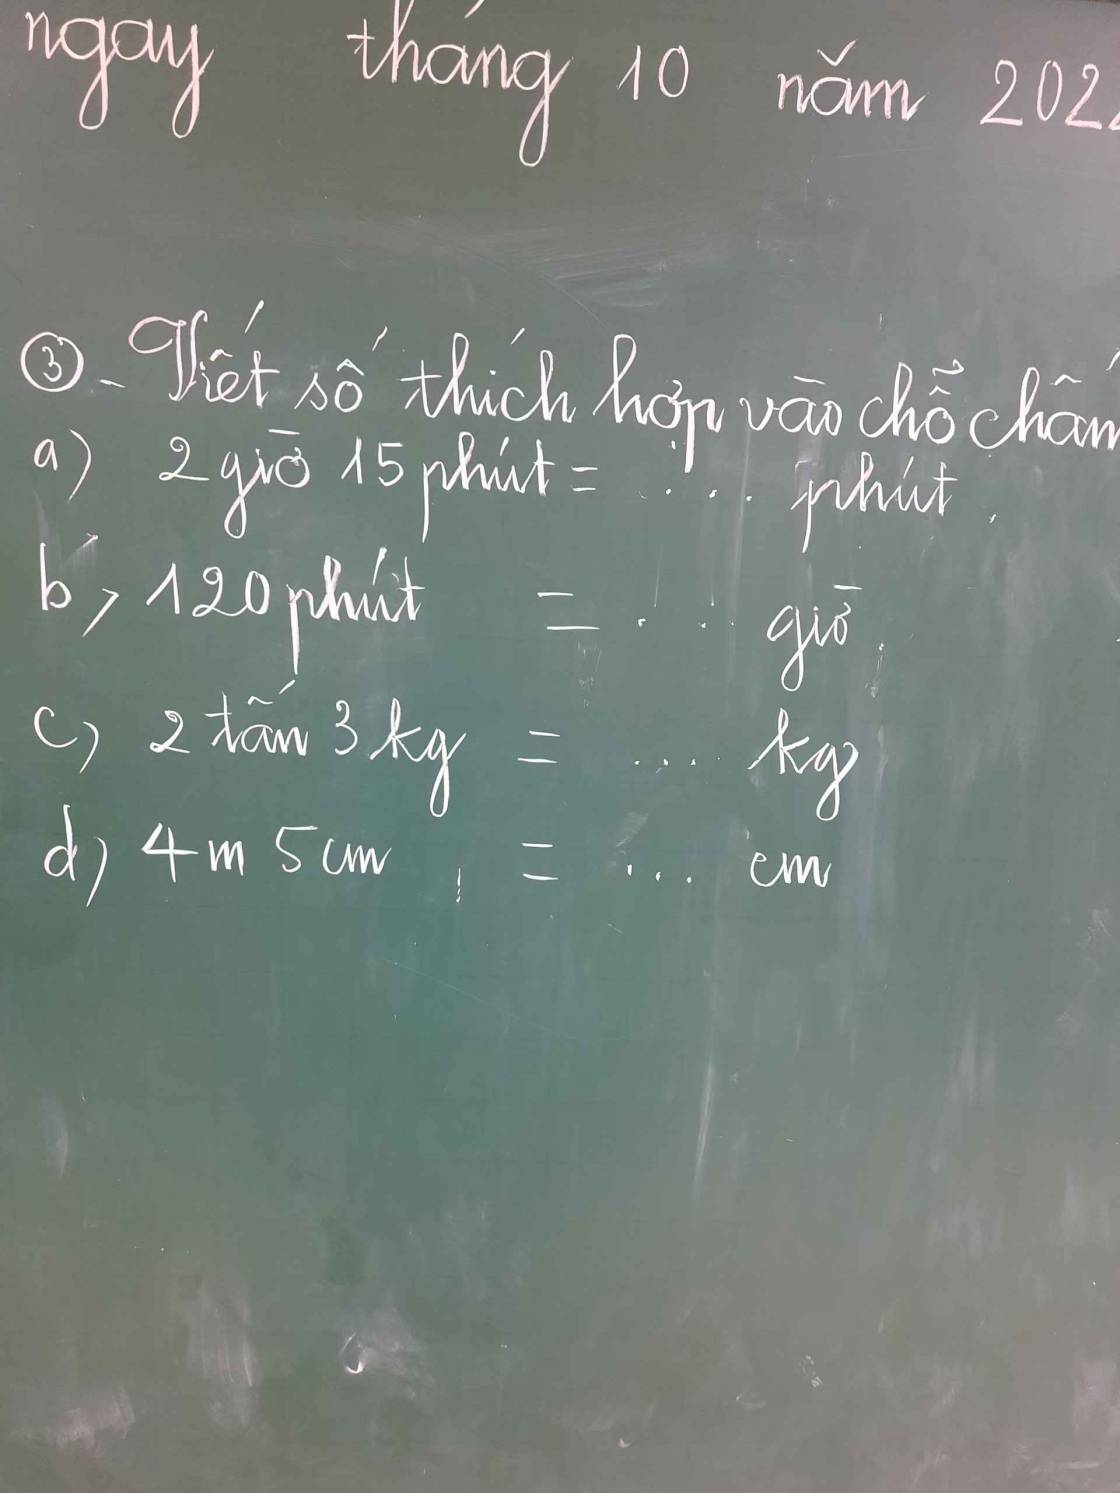 ngày tháng 10 năm 202
③ - Viết số thích hợp vào chỗ chấm
a) 2 giờ 15 phút = .... phút.
b, 120 phút = ... giờ.
c, 2 tấn 3 kg = .... kg
d, 4m 5cm = ... cm